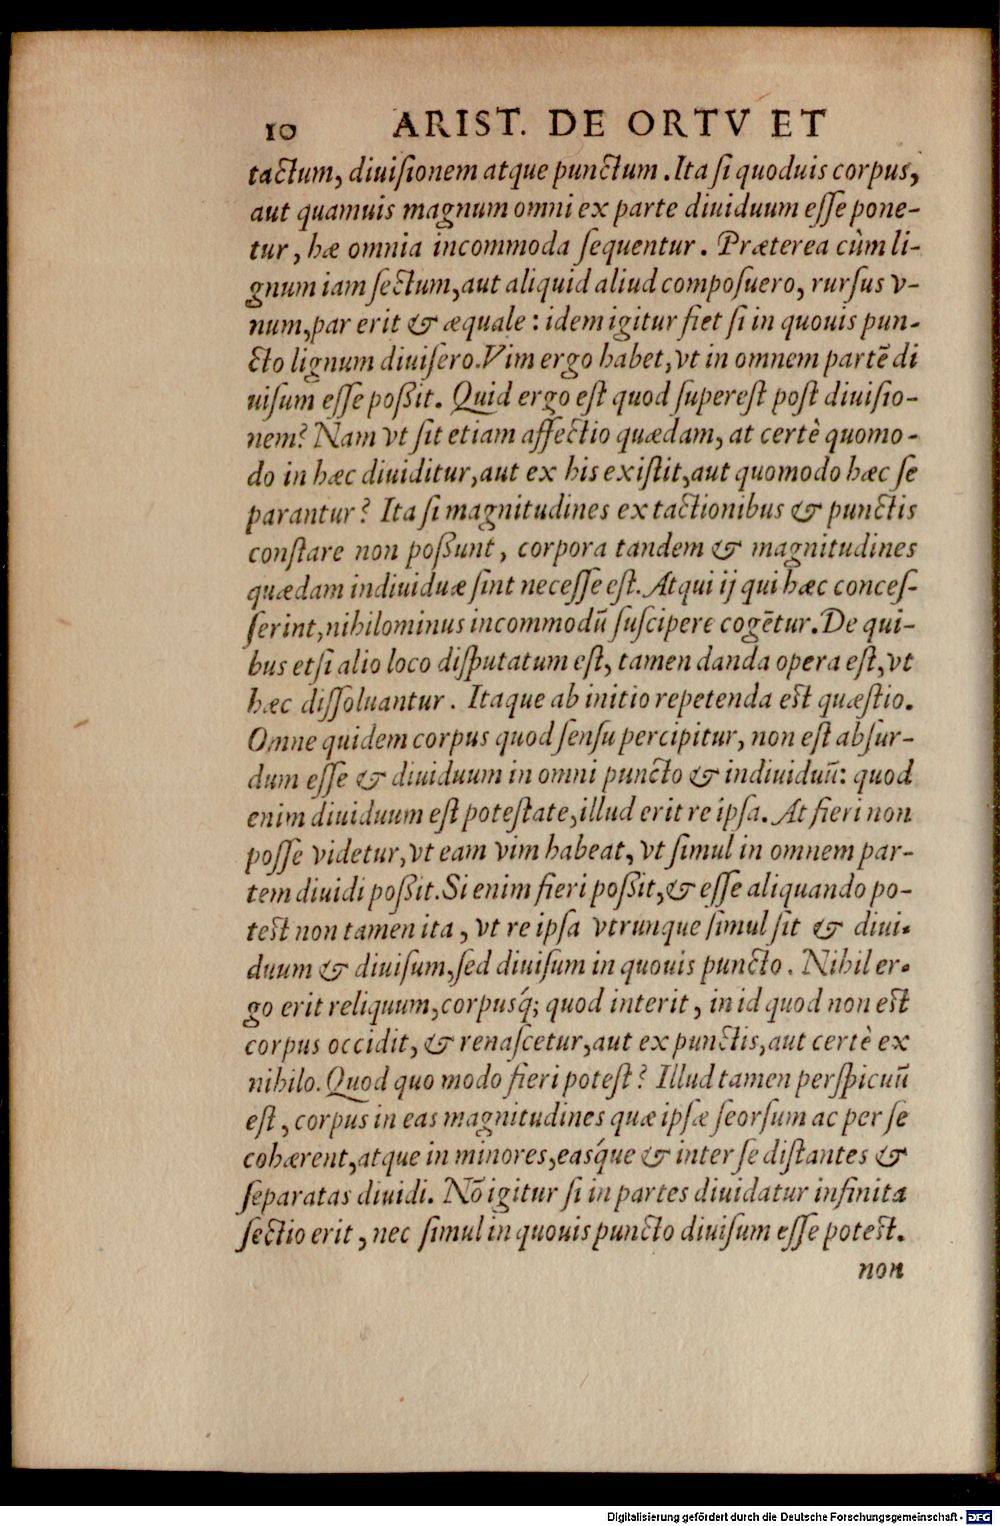 10 ARIST. DE ORTV ET
tactum, diuiſionem atque punctum. Ita ſi quoduis corpus,
aut quamuis magnum omni ex parte diuiduum eſſe pone-
tur, hæ omnia incommoda ſequentur. Præterea cùm li-
gnum iam ſectum, aut aliquid aliud compoſuero, rurſus v-
num, par erit & æquale: idem igitur fiet ſi in quouis pun-
cto lignum diuiſero. Vim ergo habet, vt in omnem partẽ di
uiſum eſſe poßit. Quid ergo eſt quod ſupereſt poſt diuiſio-
nem? Nam vt ſit etiam affectio quædam, at certè quomo-
do in hæc diuiditur, aut ex his exiſtit, aut quomodo hæc ſe
parantur? Ita ſi magnitudines ex tactionibus & punctis
conſtare non poßunt, corpora tandem & magnitudines
quædam indiuiduæ ſint neceſſe eſt. Atqui ij qui hæc conceſ-
ſerint, nihilominus incommodũ ſuſcipere cogẽtur. De qui-
bus etſi alio loco diſputatum eſt, tamen danda opera eſt, vt
hæc diſſoluantur. Itaque ab initio repetenda eſt quæſtio.
Omne quidem corpus quod ſenſu percipitur, non eſt abſur-
dum eſſe & diuiduum in omni puncto & indiuiduũ: quod
enim diuiduum eſt poteſtate, illud erit re ipſa. At fieri non
poſſe videtur, vt eam vim habeat, vt ſimul in omnem par-
tem diuidi poßit. Si enim fieri poßit, & eſſe aliquando po-
teſt non tamen ita, vt re ipſa vtrunque ſimul ſit & diui-
duum & diuiſum, ſed diuiſum in quouis puncto. Nihil er-
go erit reliquum, corpusq́; quod interit, in id quod non eſt
corpus occidit, & renaſcetur, aut ex punctis, aut certè ex
nihilo. Quod quo modo fieri poteſt? Illud tamen perſpicuũ
eſt, corpus in eas magnitudines quæ ipſæ ſeorſum ac per ſe
cohærent, atque in minores, easq́ue & inter ſe diſtantes &
ſeparatas diuidi. Nõ igitur ſi in partes diuidatur infinita
ſectio erit, nec ſimul in quouis puncto diuiſum eſſe poteſt.
non
Digitalisierung gefördert durch die Deutsche Forschungsgemeinschaft - DFG